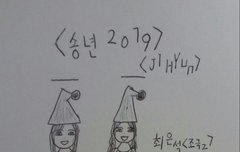 <송년 2019>
<JIHYUN>
최은성<조국2>